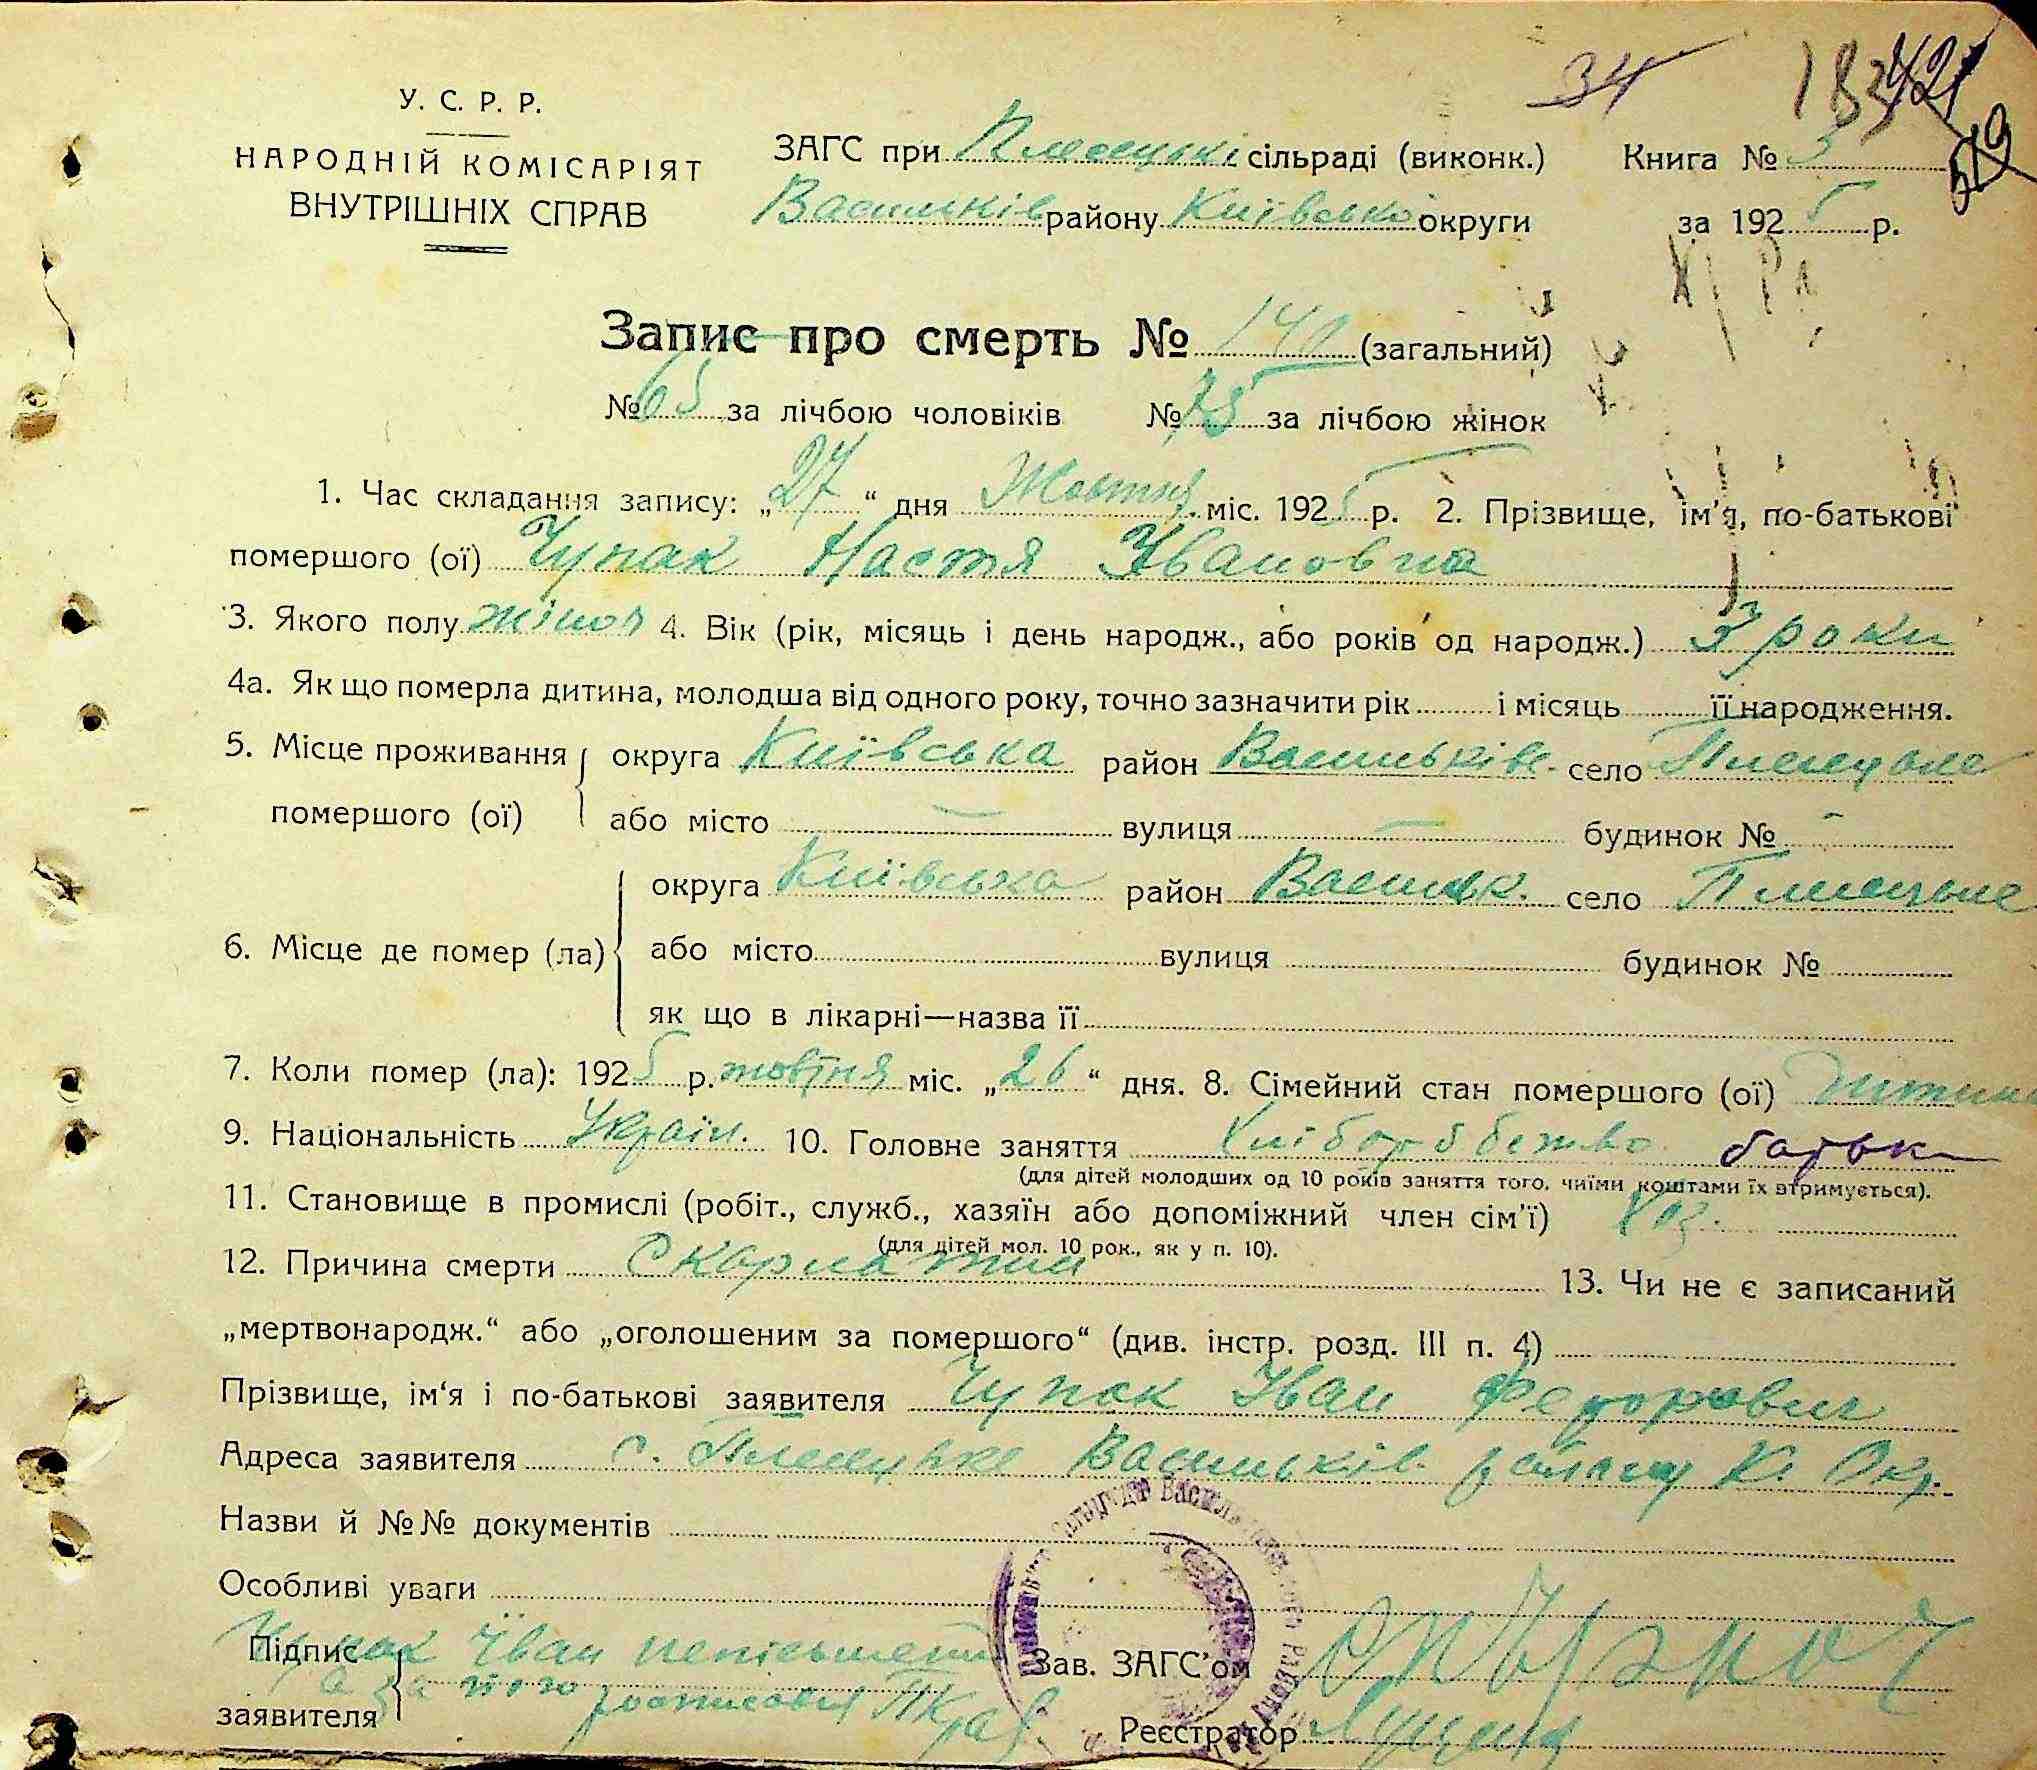 34 133 421
519
У. С. Р. Р.
НАРОДНІЙ КОМІСАРІЯТ
ВНУТРІШНІХ СПРАВ
ЗАГС при Плесецькі сільраді (виконк.) Книга № 3
Васильків району Київської округи за 1925 р.
Запис про смерть № 140 (загальний)
№ 65 за лічбою чоловіків № 75 за лічбою жінок
1. Час складання запису: „27“ дня Жовтня міс. 1925 р. 2. Прізвище, ім'я, по-батькові
помершого (ої) Чупак Настя Івановна
3. Якого полу жіноч 4. Вік (рік, місяць і день народж., або років од народж.) 3 роки
4а. Як що померла дитина, молодша від одного року, точно зазначити рік і місяць її народження.
5. Місце проживання округа Київська район Васильків. село Плесецьке
помершого (ої) або місто — вулиця — будинок № -
округа Київська район Васильк. село Плесецьке
6. Місце де помер (ла) або місто вулиця будинок №
як що в лікарні—назва її
7. Коли помер (ла): 1925 р. жовтня міс. „26“ дня. 8. Сімейний стан помершого (ої) Дитина
9. Національність Україн. 10. Головне заняття Хліборобство батьк
(для дітей молодших од 10 років заняття того, чиїми коштами їх втримується).
11. Становище в промислі (робіт., служб., хазяїн або допоміжний член сім'ї) Хаз.
(для дітей мол. 10 рок., як у п. 10).
12. Причина смерти Скарлатин 13. Чи не є записаний
„мертвонародж.“ або „оголошеним за помершого“ (див. інстр. розд. III п. 4)
Прізвище, ім'я і по-батькові заявителя Чупак Іван Федорович
Адреса заявителя с. Плесецьке Васильків. району К. Окр.
Назви й №№ документів
Особливі уваги
Підпис Чупак Іван неписьмен
заявителя а за його росписався
Зав. ЗАГС'ом
Реєстратор